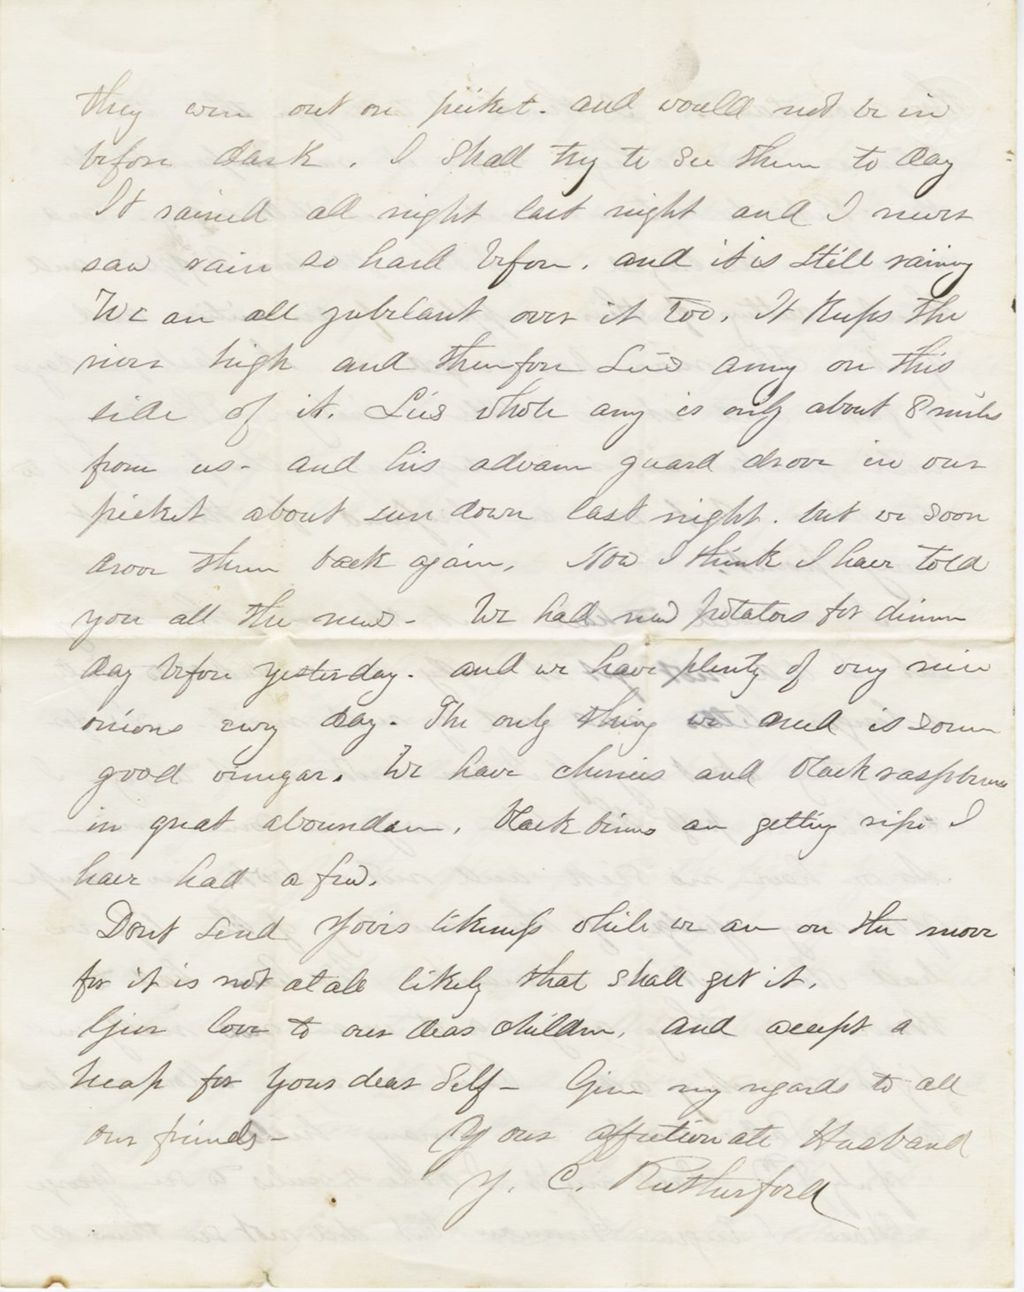 they were out on picket. and would not be in
before dark. I shall try to see them to day
It rained all night last night and I never
saw rain so hard before. and it is still raining
We are all jubelant over it too. It keeps the
river high and therefore Lee's army on this
side of it. Lee's whole army is only about 8 miles
from us - and his advance guard drove in our
picket about sun down last night. but we soon
drove them back again. Now I think I have told
you all the news - We had new potatoes for dinner
day before yesterday. and we have plenty of very nice
onions every day. The only thing we need is some
good vinegar. We have cherries and black raspberries
in great aboundance. Black berries are getting ripe I
have had a few.
Dont send your likeness while we are on the move
for it is not at all likely that shall get it.
Give love to our dear children. and accept a
heap for your dear Self - Give my regards to all
our friends - Your affectionate Husband
J. C. Rutherford